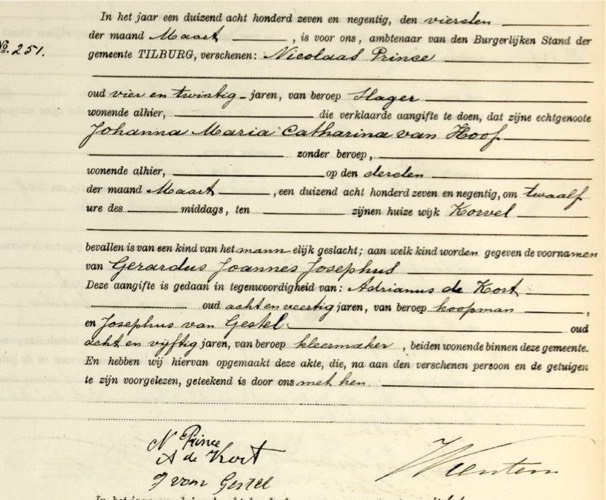 In het jaar een duizend acht honderd zeven en negentig, den viersten
der maand Maart, is voor ons, ambtenaar van den Burgerlijken Stand der
No. 251.
gemeente TILBURG, verschenen: Nicolaas Prince
oud vier en twintig jaren, van beroep Slager
wonende alhier, die verklaarde aangifte te doen, dat zijne echtgenoote
Johanna Maria Catharina van Hoof
zonder beroep,
wonende alhier, op den dersten
der maand Maart, een duizend acht honderd zeven en negentig, om twaalf
ure des middags, ten zijnen huize wijk Korvel
bevallen is van een kind van het mannelijk geslacht; aan welk kind worden gegeven de voornamen
van Gerardus Joannes Josephus
Deze aangifte is gedaan in tegenwoordigheid van: Adrianus de Kort
oud acht en veertig jaren, van beroep koopman,
en Josephus van Gestel oud
acht en vijftig jaren, van beroep kleermaker, beiden wonende binnen deze gemeente.
En hebben wij hiervan opgemaakt deze akte, die, na aan den verschenen persoon en de getuigen
te zijn voorgelezen, geteekend is door ons met hen
N Prince
A de Kort
J van Gestel